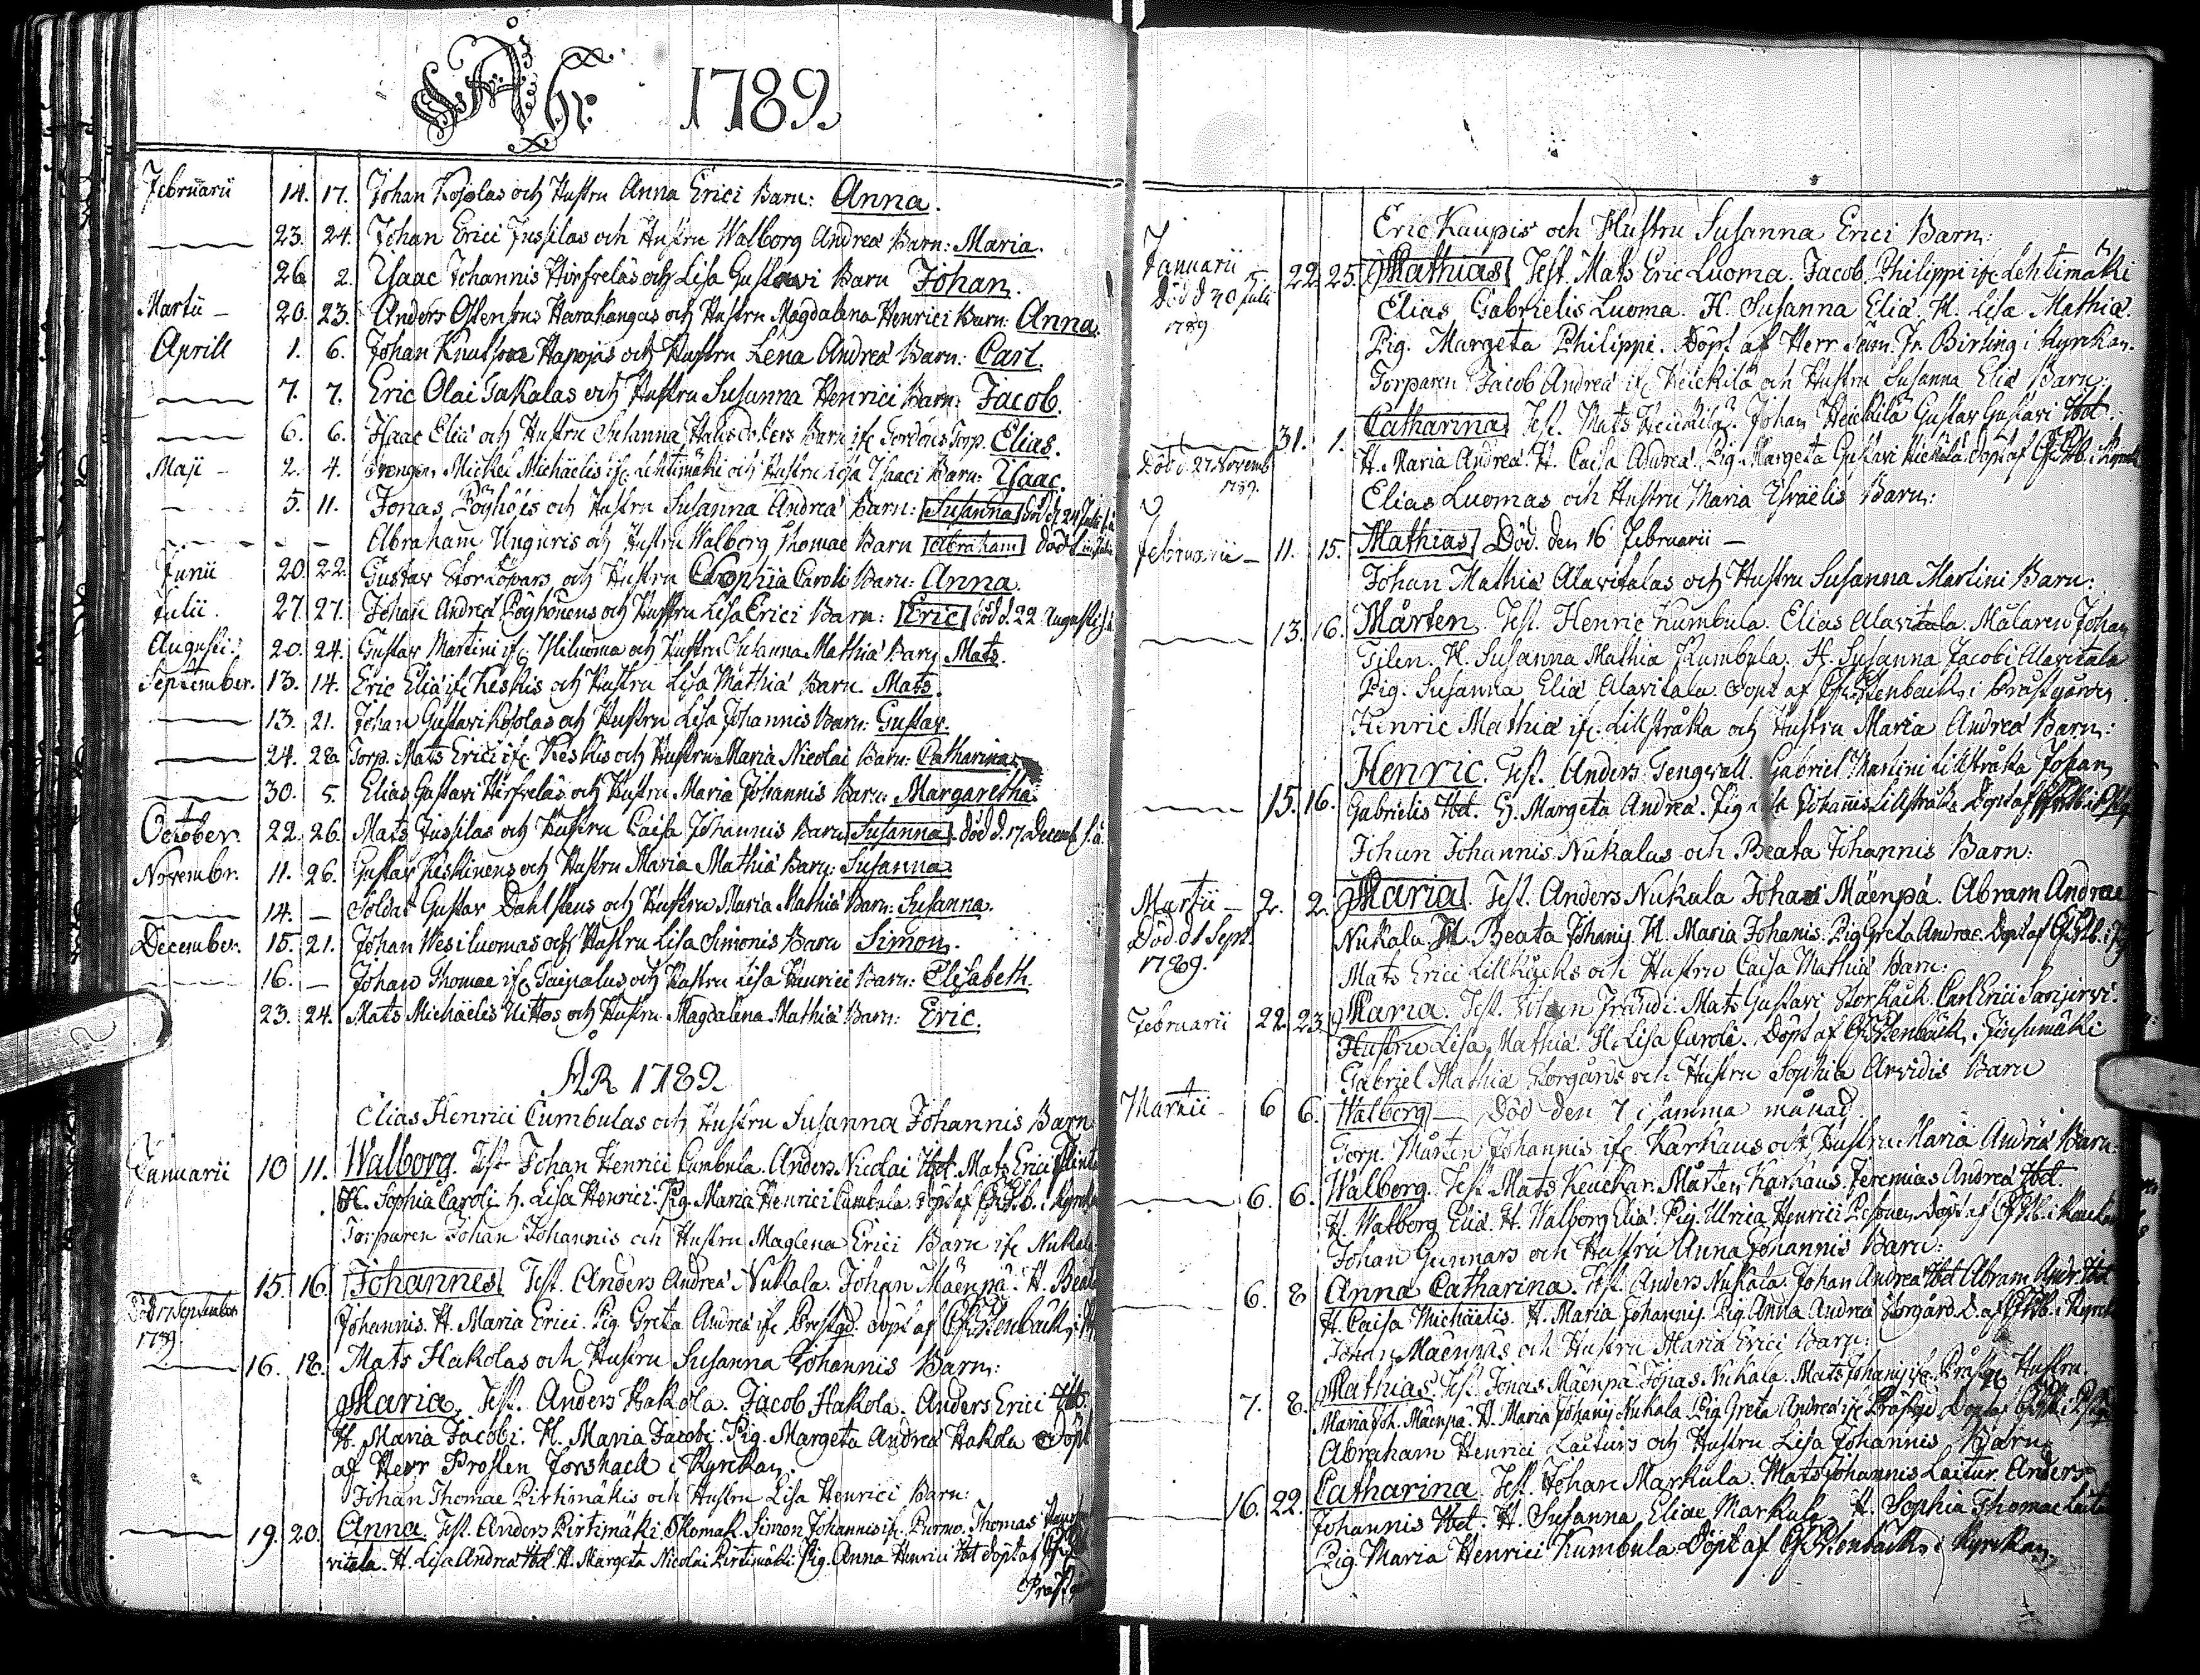 Åhr 1789.
Februarii 14. 17. Johan Kojolas och Hustru Anna Erici Barn: Anna.
23. 24. Johan Erici Jussilas och Hustru Walborg Andreæ Barn: Maria.
26 2. Isaac Johannis Hirfreläs och Lisa Gustavi Barn Johan.
Martii 20. 23. Anders Ostensons Harakangas och Hustru Magdalena Henrici Barn: Anna.
Aprill 1. 6. Johan Knutsons Hapojas och Hustru Lena Andreæ Barn: Carl.
7. 7. Eric Olai Gakalas och Hustru Susanna Henrici Barn: Jacob.
6. 6. Isaac Eliæ och Hustru Susanna Barn ifr. Torp. Elias.
Maji 2. 4. Drengen Mickel Michäelis ifr. Lehtimäki och Hustru Lisa Isaaci Barn: Isaac.
5. 11. Jonas Pöyhöis och Hustru Susanna Andreæ Barn: Susanna död d. 24 Julii
Abraham Unguris och Hustru Walborg Thomæ Barn Abraham död
Junii 20. 22. Gustav Storlöpars och Hustru Sophiia Caroli Barn: Anna.
Julii. 27. 27. Johan Andreæ Pöyhönens och Hustru Lisa Erici Barn: Eric död d. 22 Augusti
Augusti: 20. 24. Gustav Martini ifr. Yliluoma och Hustru Susanna Mathiæ Barn Mats.
September. 13. 14. Eric Eliæ ifr. Keskis och Hustru Lisa Mathiæ Barn. Mats.
13. 21. Johan Gustavi Kojolas och Hustru Lisa Johannis Barn: Gustav.
24. 28. Torp. Mats Erici ifr. Keskis och Hustru Maria Nicolai Barn: Catharina.
30. 5. Elias Gustavi Hirfreläs och Hustru Maria Johannis Barn: Margaretha.
October. 22. 26. Mats Jussilas och Hustru Caisa Johannis Barn Susanna död d. 17 Decemb. s. å.
Novembr. 11. 26. Gustav Keskinens och Hustru Maria Mathiæ Barn: Susanna.
14. — Soldat Gustav Dahlstens och Hustru Maria Mathiæ Barn: Susanna.
December. 15. 21. Johan Wesiluomas och Hustru Lisa Simonis Barn Simon.
16. — Johan Thomæ ifr. Taipalus och Hustru Lisa Henrici Barn: Elisabeth.
23. 24. Mats Michäelis Uittos och Hustru Magdalena Mathiæ Barn: Eric.
ÅR 1789
Elias Henrici Cumbulas och Hustru Susanna Johannis Barn
Januarii 10 11. Walborg. Test. Johan Henrici Cumbula. Anders Nicolai Ibd. Mats Erici
H. Sophia Caroli. H. Lisa Henrici. Pig. Maria Henrici Cumbula. Döpt af i Kyrkan
Torparen Johan Johannis och Hustru Maglena Erici Barn ifr. Nukala
15. 16. Johannes Test. Anders Andreæ Nukala. Johan Mäenpä. H. Beata
Död 17 September 1789
Johannis. H. Maria Erici. Pig. Greta Andreæ ifr. Prestgd. döpt af Stenbäck i
16. 18. Mats Hakolas och Hustru Susanna Johannis Barn:
Maria. Test. Anders Hakola. Jacob Hakola. Anders Erici Ibd
H. Maria Jacobi. H. Maria Jacobi. Pig. Margeta Andreæ Hakola Döpt
af Herr Prosten Forshaell i Kyrkan.
Johan Thomæ Pirtimäkis och Hustru Lisa Henrici Barn:
19. 20. Anna. Test. Anders Pirtimäki Skomak. Simon Johannis ifr. Purmo. Thomas
vitala. H. Lisa Andreæ Ibd. H. Margeta Nicolai Pirtimäki. Pig. Anna Henrici Ibd döpt af
Eric Kaupis och Hustru Susanna Erici Barn:
Januarii 22. 25. Mathias Test. Mats Eric Luoma. Jacob Philippi ifr. Lehtimäki
Död d. 20 Julii 1789
Elias Gabrielis Luoma. H. Susanna Eliæ. H. Lisa Mathiæ.
Pig. Margeta Philippi. Döpt af Herr i Kyrkan.
Torparen Jacob Andreæ ifr. Heickilä och Hustru Susanna Eliæ Barn:
31. 1. Catharina Test. Mats Heickilä. Johan Heickilä Gustav Gustavi Ibd.
Död d. 27 Novemb 1789.
H. Maria Andreæ. H. Caisa Andreæ. Pig. Margeta Gustavi Hickilä. döpt af i Kyrk
Elias Luomas och Hustru Maria Israëlis Barn:
Februarii 11. 15. Mathias Död. den 16 Februarii —
Johan Mathiæ Alavitalas och Hustru Susanna Martini Barn:
13. 16. Mårten Test. Henric Kumbula. Elias Alavitala. Målaren Johan
Tilen. H. Susanna Mathiæ Kumbula. H. Susanna Jacobi Alavitala
Pig. Susanna Eliæ Alavitala. döpt af Stenbäck i Prästgården.
Henric Mathiæ ifr. Lillstråka och Hustru Maria Andreæ Barn:
Henric. Test. Anders Tengvall. Gabriel Martini Lillstråka Johan
15. 16. Gabrielis Ibd. H. Margeta Andreæ. Pig. Lisa Johannis Lillstråka Döpt af
Johan Johannis Nukalas och Beata Johannis Barn:
Martii 2. 2. Maria. Test. Anders Nukala Johan Mäenpä. Abram Andreæ
Död d 1 Sept. 1789.
Nukala H. Beata Johannis. H. Maria Johanis. Pig Greta Andreæ. Döpt af
Mats Erici Lillkäcks och Hustru Caisa Mathiæ Barn:
Februarii 22. 23. Maria. Test. Johan Frändi. Mats Gustavi Storkäck. Carl Erici Savijervi.
Hustru Lisa Mathiæ. H. Lisa Caroli. Döpt af Stenbäck i
Gabriel Mathiæ Storgårds och Hustru Sophia Arvidis Barn
Martii 6 6. Walborg — Död den 7 i samma månad
Torp. Mårten Johannis ifr. Karhaus och Hustru Maria Andreæ Barn:
6. 6. Walborg. Test. Mats Keuckar. Mårten Karhaus. Jeremias Andreæ Ibd.
H. Walborg Eliæ. H. Walborg Eliæ. Pig. Ulrica Henrici Pesonen. Döpt af
Johan Gunnars och Hustru Anna Johannis Barn:
6. 8 Anna Catharina. Test. Anders Nukala. Johan Andreæ Ibd. Abram Andr. Ibd
H. Caisa Michäelis. H. Maria Johannis. Pig. Anna Andreæ Storgård. D. af i Kyrk
Johan Mäenpäs och Hustru Maria Erici Barn:
7. 8. Mathias. Test. Jonas Mäenpä Jonas Nukala. Mats Johanis ifr. Prästg. Hustru
Maria Joh. Mäenpä. H. Maria Johanis Nukala. Pig. Greta Andreæ ifr. Prästgd. Döpt af
Abraham Henrici Laiturs och Hustru Lisa Johannis Barn:
16. 22. Catharina. Test. Johan Markula. Mats Johannis Laitur. Anders
Johannis Ibd. H. Susanna Eliæ Markula. H. Sophia Thomæ
Pig. Maria Henrici Kumbula. Döpt af Stenbäck i Kyrkan.